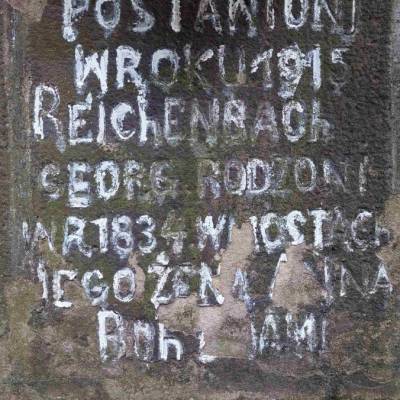 POSTAWIONY
W ROKU 1915
REICHENBACH
GEORG RODZONY
W R 1834 W MOSTACH
JEGO ŻENA ANNA